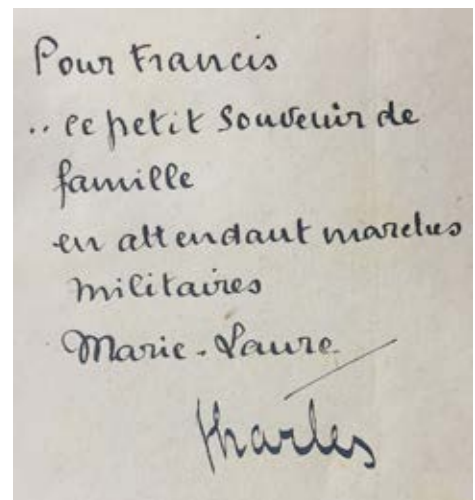 Pour Francis
.. ce petit souvenir de
famille
en attendant marches
militaires
Marie-Laure
Charles